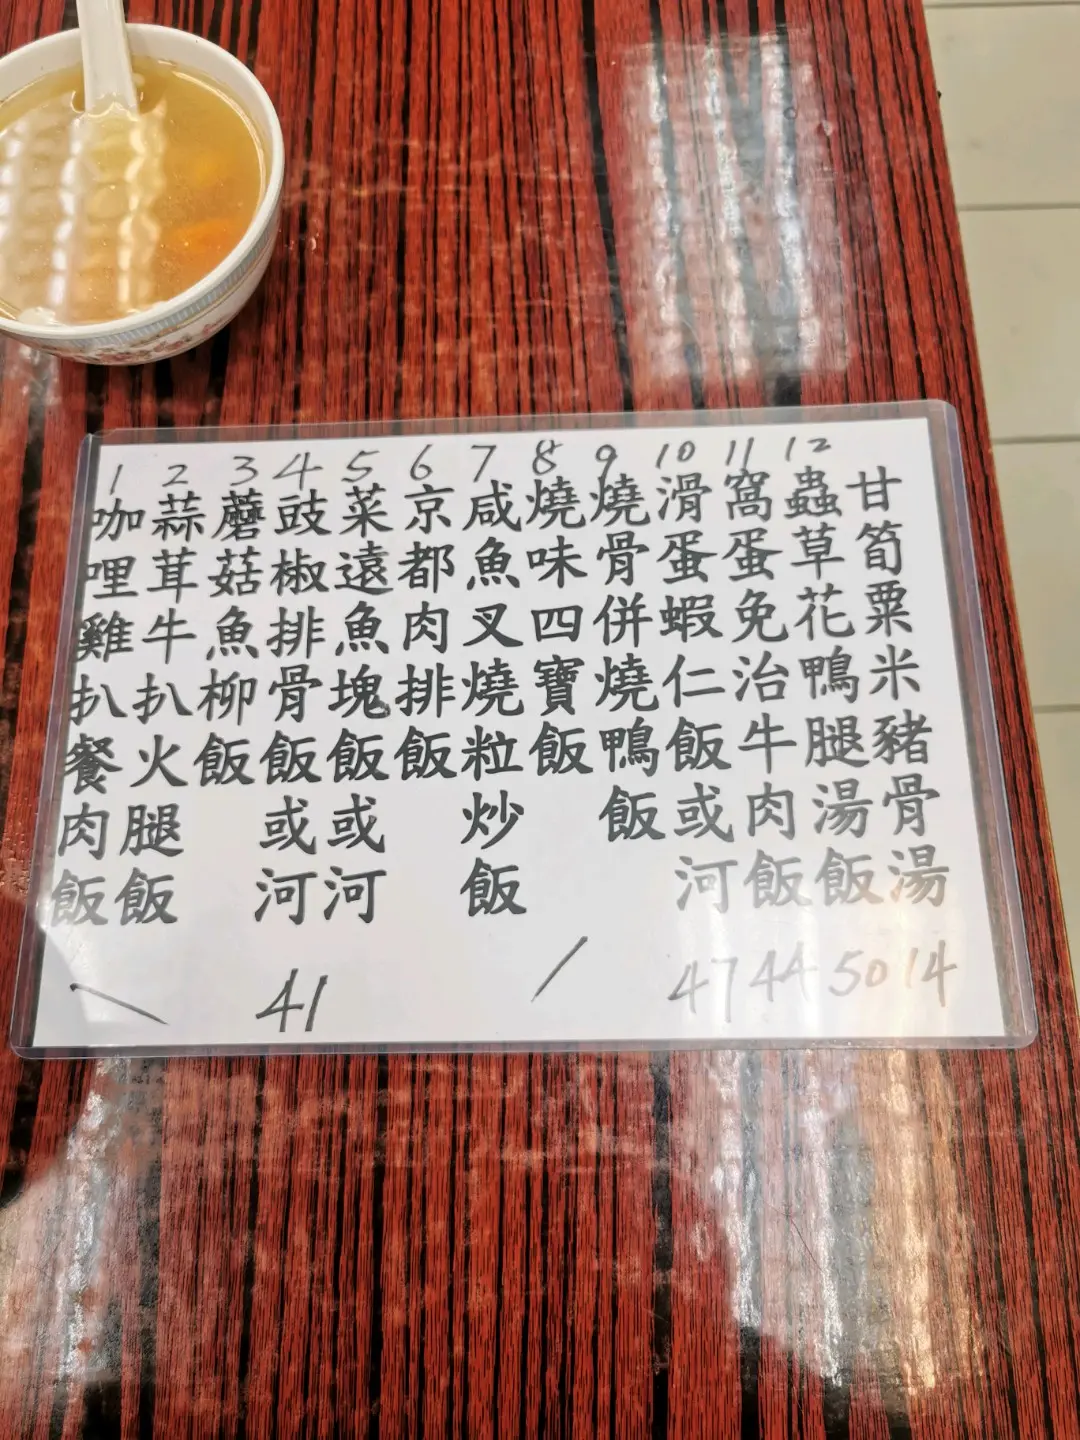 1 咖哩雞扒餐肉飯
2 蒜茸牛扒火腿飯
3 蘑菇魚柳飯
4 豉椒排骨飯或河
5 菜遠魚塊飯或河
6 京都肉排飯
7 咸魚叉燒粒炒飯
8 燒味四寶飯
9 燒骨併燒鴨飯
10 滑蛋蝦仁飯或河
11 窩蛋免治牛肉飯
12 蟲草花鴨腿湯飯
甘筍粟米豬骨湯
41
47
44
50
14